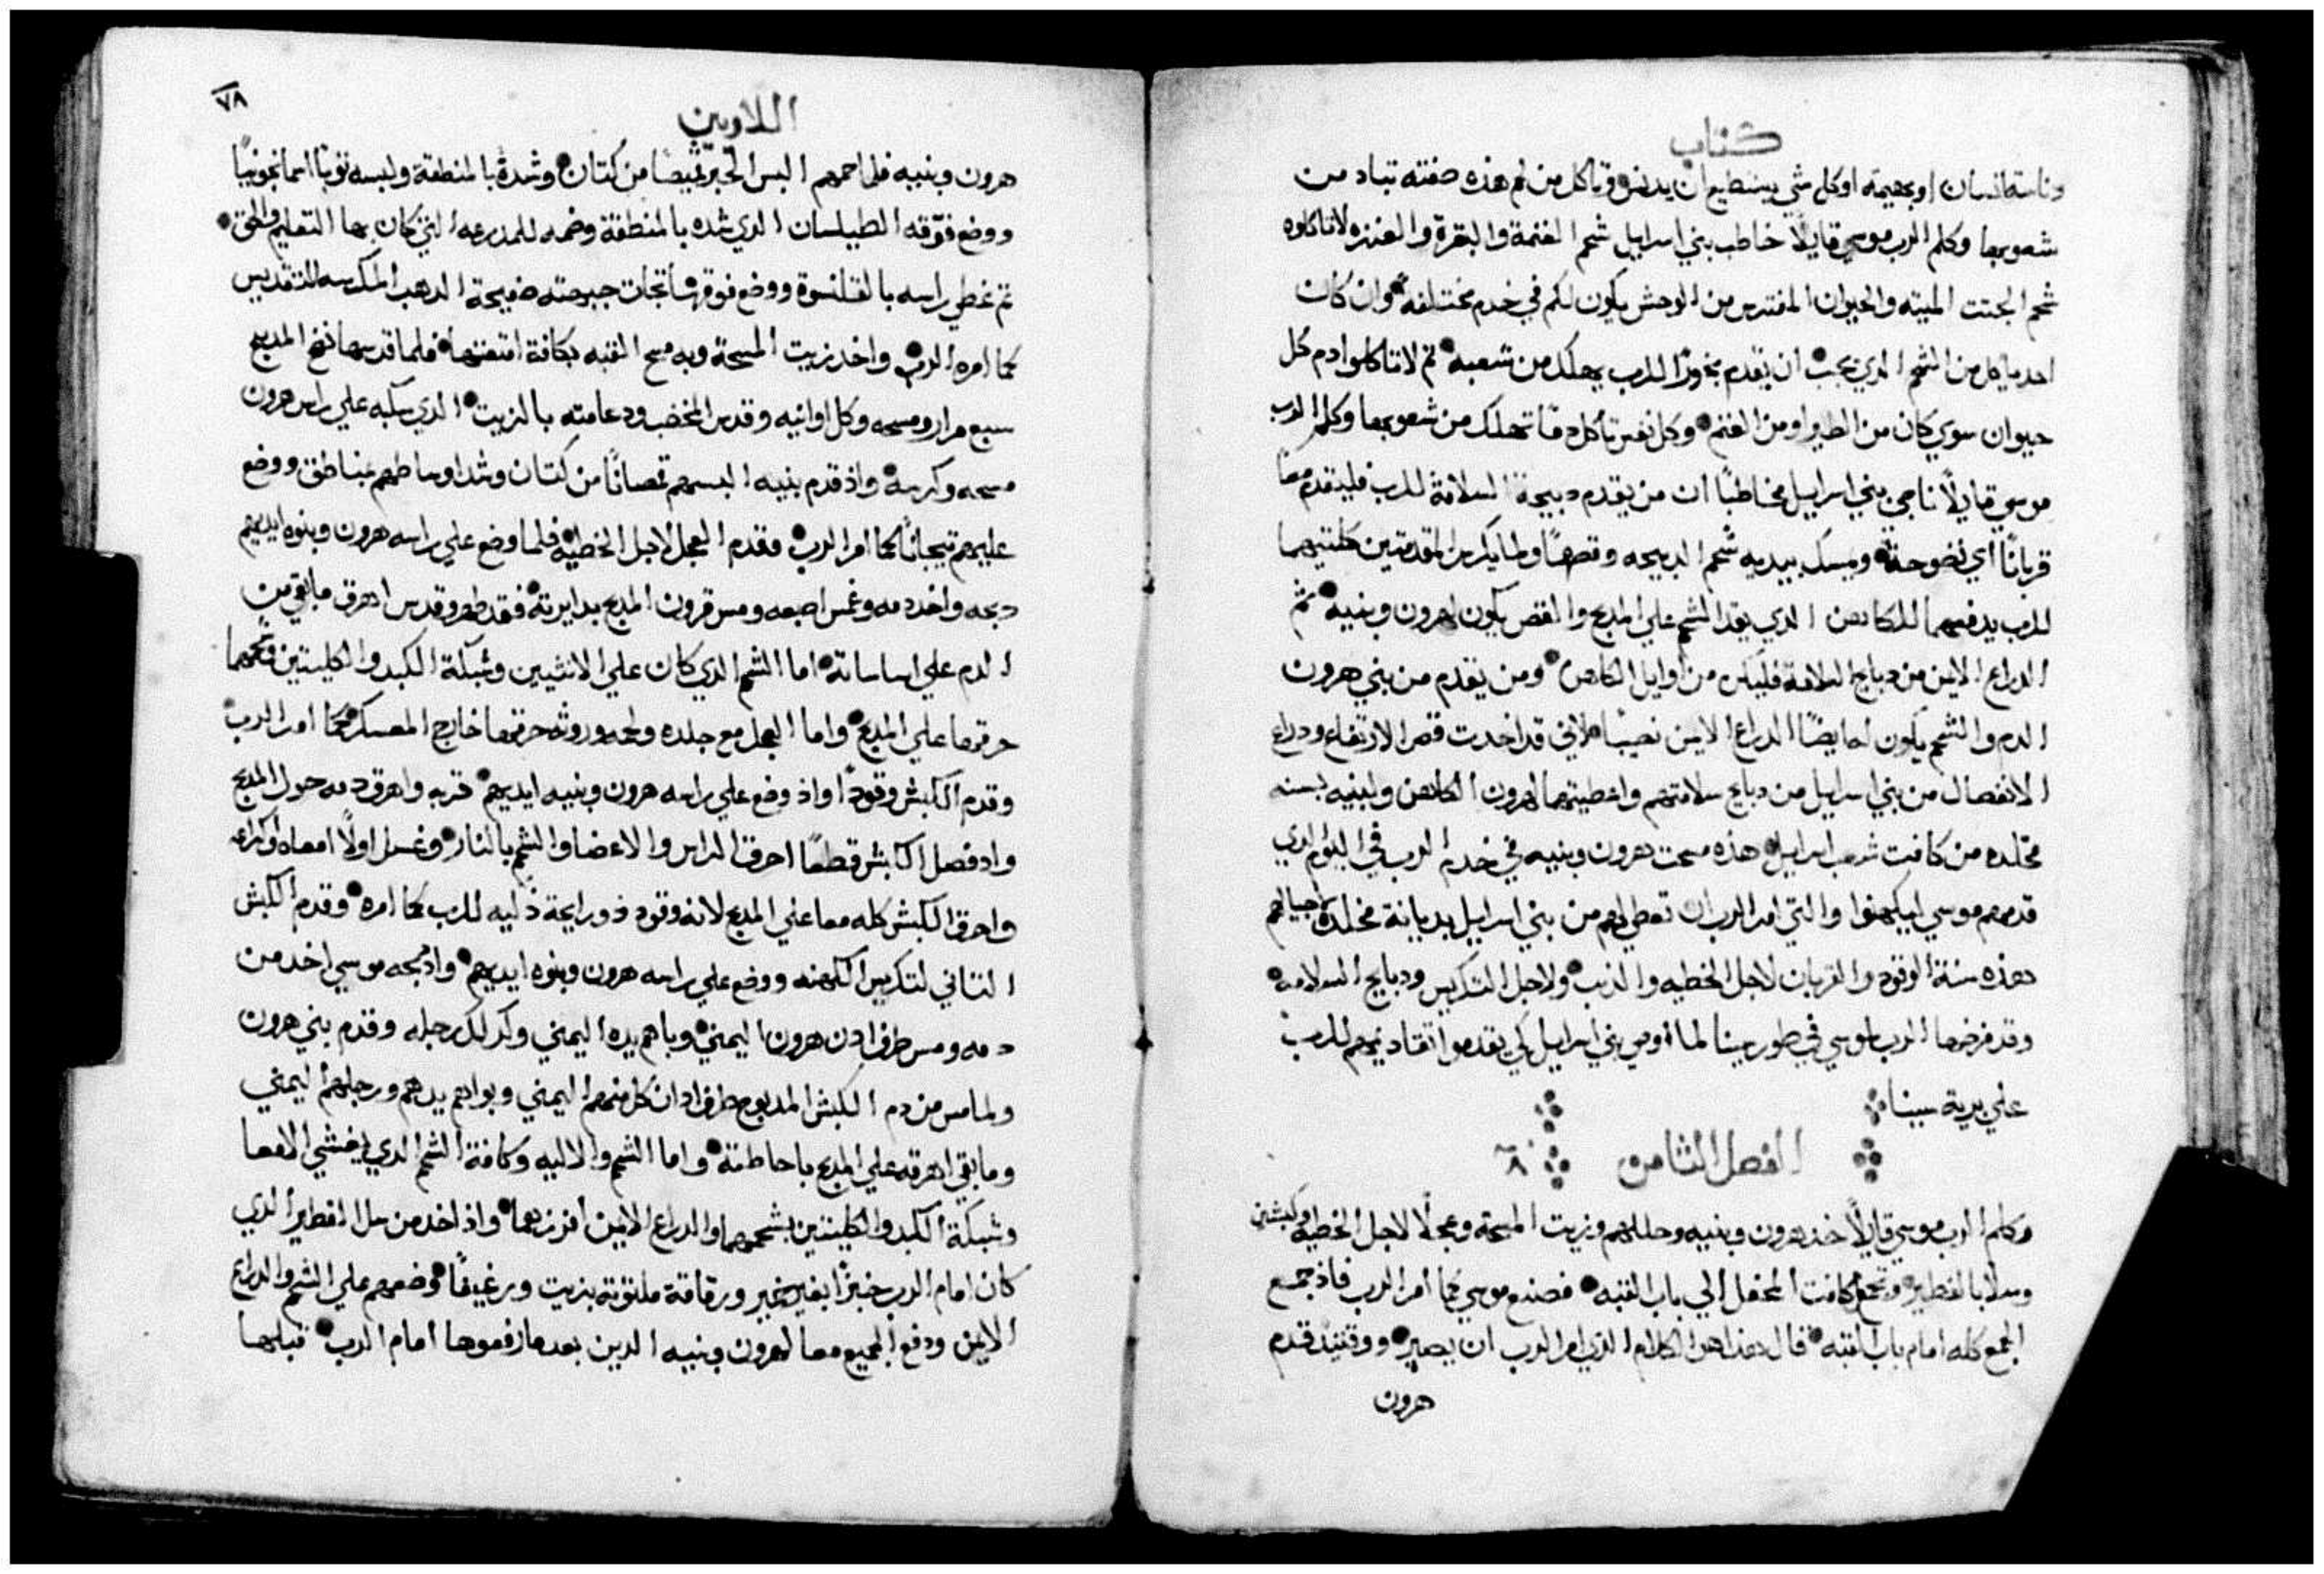 كتاب
دناسة انسان او بهيمه او كل شي يستطيع ان يدنس وياكل من لحم هذه صفته تباد من
شعوبها وكلم الرب موسي قايلًا خاطب بني اسراييل شحم الغنمة والبقرة والعنزه لا تاكلوه
شحم الجتت الميته والحيوان المفترس من الوحش يكون لكم في خدم مختلفه وان كان
احد ياكل من الشحم الدي يجب ان يقدم بخورًا للرب يهلك من شعبه تم لا تاكلوا دم كل
حيوان سوي كان من الطير او من الغنم وكل نفس تاكل دمًا تهلك من شعوبها وكلم الرب
موسي قايلًا ناجي بني اسراييل مخاطبًا ان من يقدم دبيحة السلامة للرب فليقدم معًا
قربانًا اي نضوحة ويمسك بيديه شحم الدبيحه وقصها ولما يكرس المقدمتين كلتيهما
للرب يدفعهما للكاهن الدي يقد الشحم علي المدبح والقص يكون لهرون وبنيه ثم
الدراع الايمن من دبايح السلامة فليكن من اوايل الكاهن ومن يقدم من بني هرون
الدم والشحم يكون له ايضًا الدراع الايمن نصيبًا لاني قد اخدت قص الارتفاع ودراع
الانفصال من بني اسراييل من دبايح سلامتهم واعطيتهما لهرون الكاهن ولبنيه بسنه
مخلده من كافت شعب اسراييل هذه مسحت هرون وبنيه في خدم الرب في اليوم الدي
قدمهم موسي ليكهنوا والتي امر الرب ان تعطي لهم من بني اسراييل بديانة مخلدة لاجيالهم
هذه سنة الوقود والقربان لاجل الخطيه والذنب ولاجل التكريس ودبايح السلامه
وقد فرضها الرب لموسي في طور سينا لما اوصي بني اسراييل كي يقدموا تقادتهم للرب
علي برية سينا
الفصل الثامن ٨
وكلم الرب موسي قايلًا خذ هرون وبنيه وحللهم وزيت المسحة وعجلًا لاجل الخطيه وكبشين
وسلًا بالفطير وتجمع كافت المحفل الي باب القبه فصنع موسي كما امر الرب فاذ جمع
الجمع كله امام باب القبه قال هذا هو الكلام الذي امر الرب ان يصير ووقتيد قدم
هرون
اللاويين
٧٨
هرون وبنيه فلما حمهم البس الحبر قميصًا من كتان وشده بالمنطقة ولبسه توبًا اسمانجونيًا
ووضع فوقه الطيلسان الدي شده بالمنطقة وضمه للمدرعه التي كان بها التعليم والحق
تم غطي راسه بالقلنسوة ووضع فوقها تجات جبهته صفيحة الدهب المكرسه للتقديس
كما امره الرب واخد زيت المسحة وبه مسح القبه بكافة امتعتها فلما قدسها نضح المدبح
سبع مرار ومسحه وكل اوانيه وقدس المخضب ودعامته بالزيت الدي سكبه علي راس هرون
مسحه وكرسه واذ قدم بنيه البسهم قمصانًا من كتان وشد اوساطهم بمناطق ووضع
عليهم تيجانًا كما امر الرب وقدم العجل لاجل الخطيه فلما وضع علي راسه هرون وبنوه ايديهم
دبحه واخد دمه وغمس اصبعه ومس قرون المدبح بدايرته فقد طهر وقدس اهرق ما بقي من
الدم علي اساساته اما الشحم الدي كان علي الانثيين وشبكة الكبد والكليتين وشحمهما
حرقها علي المدبح واما العجل مع جلده ولحمه وروثه حرقها خارج المعسكر كما امر الرب
وقدم الكبش وقودًا واذ وضع علي راسه هرون وبنيه ايديهم قربه واهرق دمه حول المدبح
واد فصل الكبش قطعًا احرق الراس والاعضا والشحم بالنار وغسل اولًا امعاه واكراعه
واحرق الكبش كله معا علي المدبح لانه وقود ذو رايحة ذكيه للرب كما امره وقدم الكبش
التاني لتكريس الكهنه ووضع علي راسه هرون وبنوه ايديهم واذ دبحه موسي اخد من
دمه ومس طرف ادن هرون اليمني وباهم يده اليمني وكدلك رجله وقدم بني هرون
ولما مس من دم الكبش المدبوح طرف ادان كل منهم اليمني وبواهم يدهم ورجلهم اليمني
وما بقي اهرقه علي المدبح باحاطته واما الشحم والاليه وكافة الشحم الدي يغشي الامعا
وشبكة الكبد والكليتين بشحمهما والدراع الايمن افرزها واذ اخد من سل الفطير الدي
كان امام الرب خبزًا بغير خمير ورقاقة ملتوته بزيت ورغيفًا وضعهم علي الشحم والدراع
الايمن ودفع الجميع معا لهرون وبنيه الدين بعد ما رفعوها امام الرب قبلها